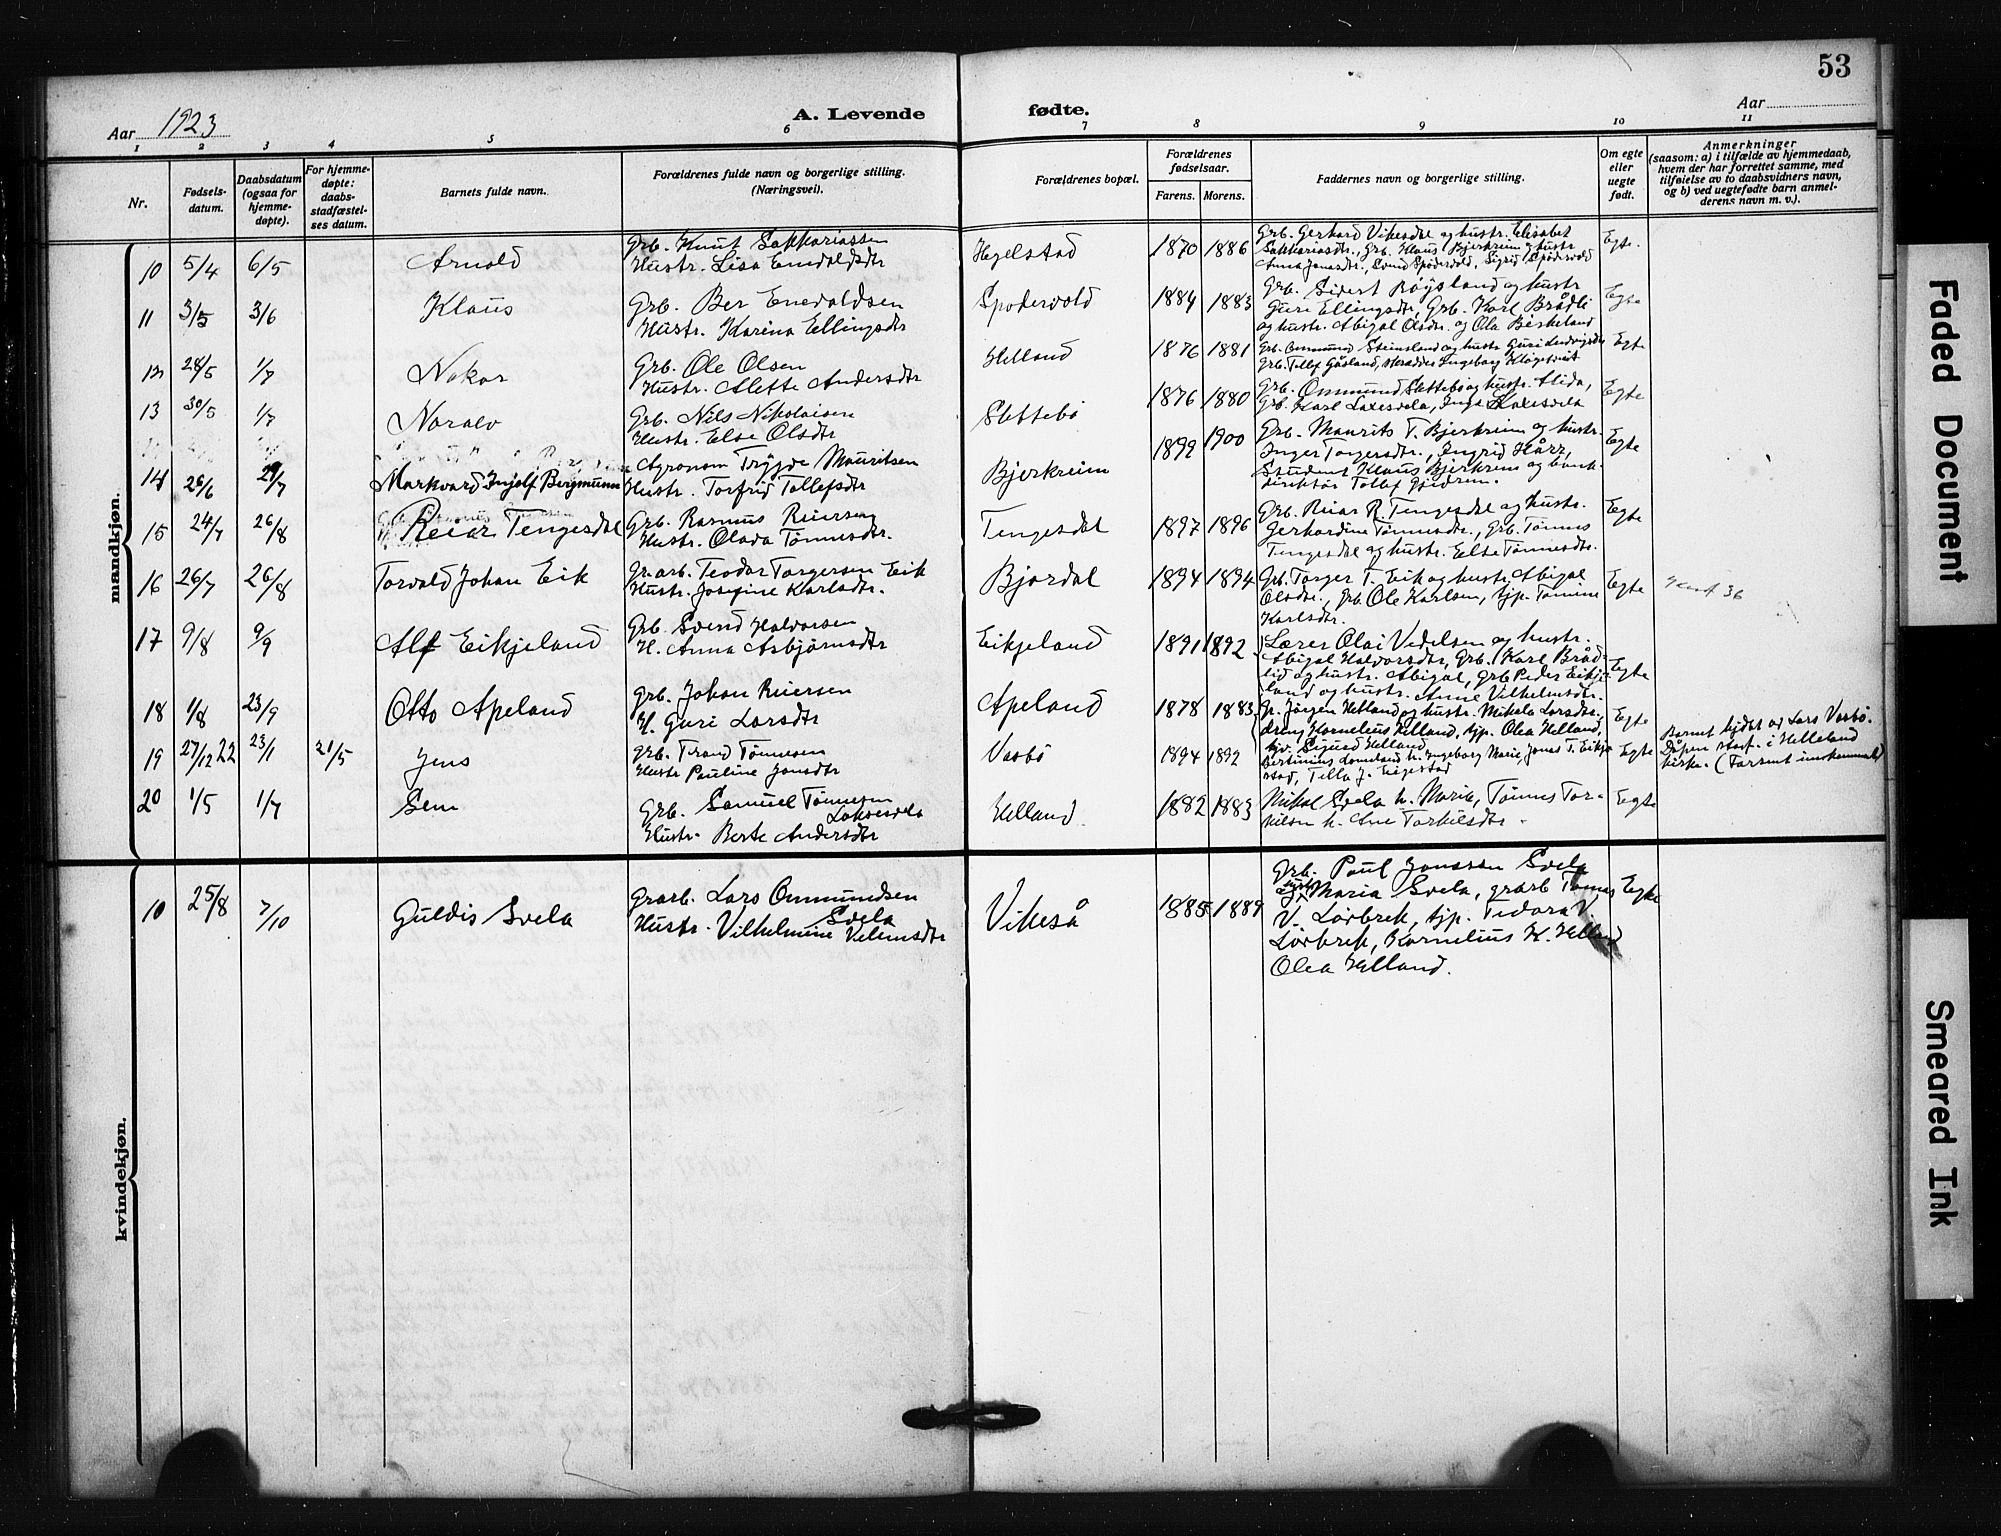 53
Aar 1923
A. Levende fødte.
Aar
1 2 3 4 5 6 7 8 9 10 11
Nr.
Fødsels-
datum.
Daabsdatum
(ogsaa for
hjemme-
døpte).
For hjemme-
døpte:
daabs-
stadfæstel-
ses datum.
Barnets fulde navn.
Forældrenes fulde navn og borgerlige stilling.
(Næringsvei).
Forældrenes bopæl.
Forældrenes
fødselsaar.
Farens. Morens.
Faddernes navn og borgerlige stilling.
Om egte
eller
uegte
født.
Anmerkninger
(saasom: a) i tilfælde av hjemmedaab,
hvem der har forrettet samme, med
tilføielse av to daabsvidners navn,
og b) ved uegtefødte barn anmel-
derens navn m. v.).
mandkjøn.
10 5/4 6/5 Arnold
Grb. Knut Sakkariassen
Hustr. Lisa Enevaldsdtr
Hegelstad 1870 1886
Grb. Gerhard Vikesdal og hustr. Elisabet
Sakkariasdtr., Grb. Klaus Bjerkreim og hustr
Anna Jonasdtr., Svend Spødervold, Sigrid Spødervold
Egte.
11 3/5 3/6 Klaus
Grb. Ber Enevaldsen
Hustr. Karina Ellingsdtr
Spødervold 1884 1883
Grb. Sivert Røysland og hustr
Guri Ellingsdtr, Grb. Karl Brådli
og hustr. Abigal Olsdtr. og Ola Birkeland
Egte
12 28/5 1/7 Nokor
Grb. Ole Olsen
Hustr. Alette Andersdtr
Helland 1876 1881
Grb. Ommund Steinsland og hustr Guri Ludvigsdtr
Grb. Tellef Gåsland, Ingeborg Kløgetveit
Egte
13 30/5 1/7 Noralv
Grb. Nils Nikolaisen
Hustr. Else Olsdtr
Slettebø 1876 1880
Grb. Ommund Slettebø og hustr. Alida,
Grb. Karl Laxesvela, Inga Laxesvela
Egte
14 26/6 29/7 Markvard Ingolf Bergmunn
Agronom Trygve Mauritsen
Hustr. Torfrid Tollefsdtr
Bjerkreim 1892 1900
Grb. Maurits T. Bjerkreim og hustr.
Inger Torgersdtr., Ingrid Hårr,
Student Klaus Bjerkreim og bank-
direktør Tollef Gjedrem.
Egte
15 24/7 26/8 Reiar Tengesdal
Grb. Rasmus Reiersen
Hustr. Olava Tønnesdtr.
Tengesdal 1897 1896
Grb. Reiar R. Tengesdal og hustr.
Gerhardine Tønnesdtr., Grb. Tønnes
Tengesdal og hustr. Else Tønnesdtr.
Egte
16 26/7 26/8 Torvald Johan Eik
Gr.arb. Teodor Torgersen Eik
Hustr. Josefine Karlsdtr.
Bjordal 1894 1894
Grb. Torger T. Eik og hustr. Abigal
Olsdtr., Grb. Ole Karlsen, tjp. Tomine
Karlsdtr.
Egte
17 9/8 9/9 Alf Eikjeland
Grb. Svend Halvorsen
H. Anna Asbjørnsdtr
Eikjeland 1891 1892
Lærer Olai Vedelsen og hustr.
Abigal Halvorsdtr, Grb. Karl Bråd-
lid og hustr. Abigal, Grb Peder Eikje-
land og hustr. Anne Vilhelmsdtr.
Egte
18 1/8 23/9 Otto Apeland
Grb. Johan Reiersen
H. Guri Larsdtr
Apeland 1878 1883
Gr. Jørgen Helland og hustr. Mikala Larsdtr.,
dreng Kornelius Helland, tjp. Olea Helland,
Sigurd Helland
Egte
19 27/12 22 23/1 21/5 Jens
Grb. Trond Tønnesen
Hustr Pauline Jonsdtr
Vasbø 1894 1892
Bertinius Lomeland h. Ingeborg Marie, Jonas T. Eike-
stad, Tilla J. Eigestad
Egte
Barnet hjdøbt av Lars Vasbø.
Dåpen staf. i Helleland
kirke.
20 1/5 1/7 Sem
Grb. Samuel Tønnesen
Laksesvela
Hustr. Berte Andersdtr
Helland. 1882 1883
Mikal Svela h. Marie, Tønnes Tor-
kilsen h. Ane Torkilsdtr.
Egte
kvindekjøn.
10 25/8 7/10 Guldis Svela
Grarb. Lars Ommundsen
Svela
Hustr. Vilhelmine Vilemsdtr
Vikeså 1885 1889
Grb. Paul Jonassen Svela
Maria Svela, grarb Tønnes
V. Lørbrek, tjp. Tedora V.
Lørbrek, Kornelius K. Helland
Olea Helland.
Egte
Faded Document
Smeared Ink